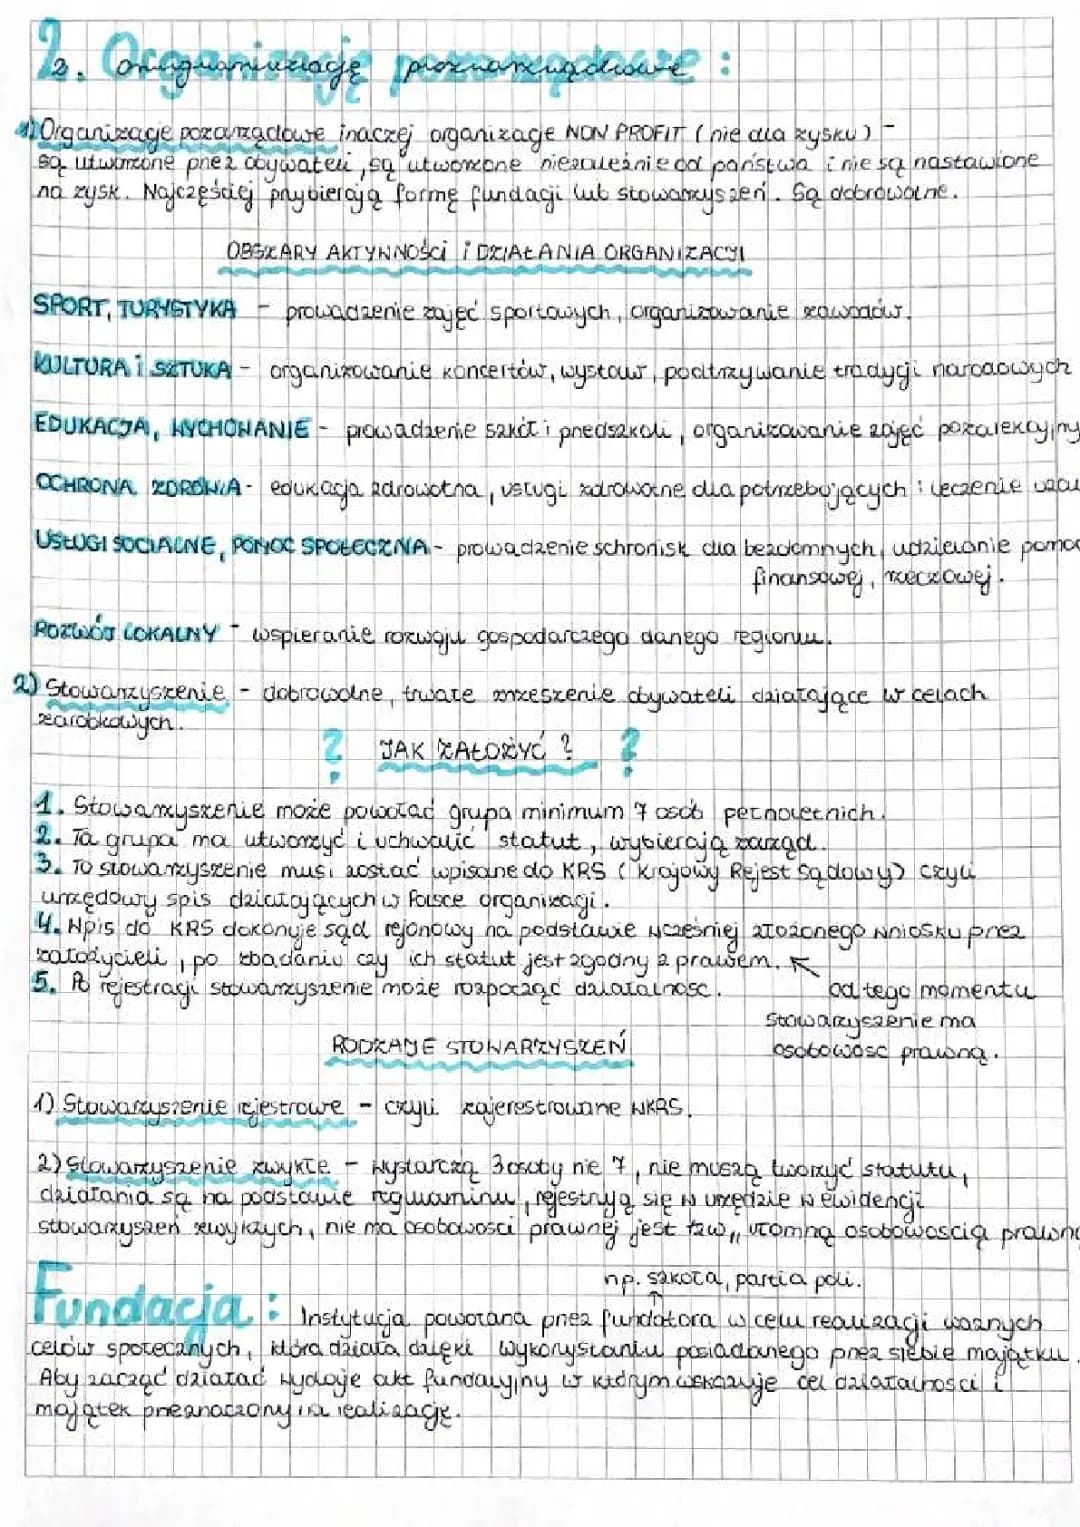 2. Organizacje pozarządowe :
1) Organizacje pozarządowe inaczej organizacje NON PROFIT (nie dla zysku) -
są utworzone przez obywateli, są utworzone niezależnie od państwa i nie są nastawione
na zysk. Najczęściej przybierają formę fundacji lub stowarzyszeń. Są dobrowolne.
OBSZARY AKTYWNOŚCI i DZIAŁANIA ORGANIZACJI
SPORT, TURYSTYKA - prowadzenie zajęć sportowych, organizowanie zawodów.
KULTURA i SZTUKA - organizowanie koncertów, wystaw, podtrzywanie tradycji narodowych
EDUKACJA, WYCHOWANIE - prowadzenie szkół i przedszkoli, organizowanie zajęć pozalekcyjny
OCHRONA ZDROWIA - edukacja zdrowotna, usługi zdrowotne dla potrzebujących i leczenie
USŁUGI SOCIALNE, POMOC SPOŁECZNA - prowadzenie schronisk dla bezdomnych, udzielanie pomoc
finansowej, rzeczowej.
ROZWÓJ LOKALNY - wspieranie rozwoju gospodarczego danego regionu.
2) Stowarzyszenie - dobrowolne, trwałe zrzeszenie obywateli działające w celach
zarobkowych.
? JAK ZAŁOŻYĆ ? ?
1. Stowarzyszenie może powołać grupa minimum 7 osób pełnoletnich.
2. Ta grupa ma utworzyć i uchwalić statut, wybierają zarząd.
3. To stowarzyszenie musi zostać wpisane do KRS (Krajowy Rejest Sądowy) czyli
urzędowy spis działających w Polsce organizacji.
4. Wpis do KRS dokonuje sąd rejonowy na podstawie wcześniej złożonego wniosku przez
założycieli, po zbadaniu czy ich statut jest zgodny z prawem. ↖
5. Po rejestracji stowarzyszenie może rozpocząć działalność. od tego momentu
stowarzyszenie ma
osobowość prawną.
RODZAJE STOWARZYSZEŃ
1) Stowarzyszenie rejestrowe - czyli zajerestrowane w KRS.
2) Stowarzyszenie zwykłe - wystarczą 3 osoby nie 7, nie muszą tworzyć statutu,
działania są na podstawie regulaminu, rejestrują się w urzędzie w ewidencji
stowarzyszeń zwykłych, nie ma osobowości prawnej jest tzw,, ułomną osobowością prawną
np. szkoła, partia poli.
↑
Fundacja : Instytucja powołana przez fundatora w celu realizacji ważnych
celów społecznych, która działa dzięki wykorzystaniu posiadanego przez siebie majątku.
Aby zacząć działać wydaje akt fundacyjny w którym wskazuje cel działalności i
majątek przeznaczony na realizację.